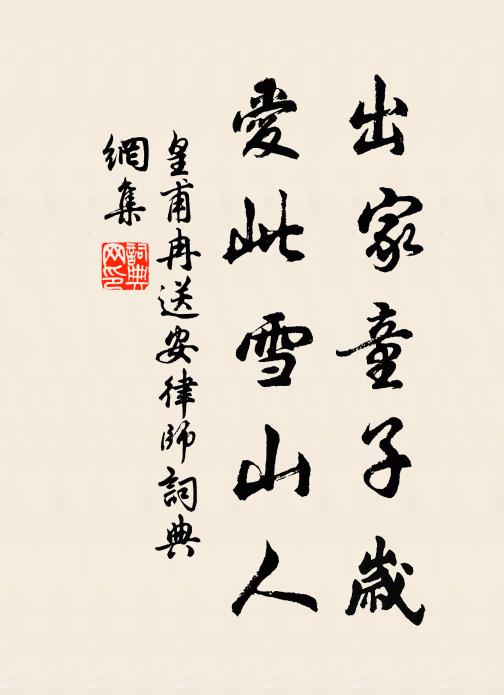 出家童子歲
愛此雪山人
皇甫冉送安律師詞典
網集
詞典网印